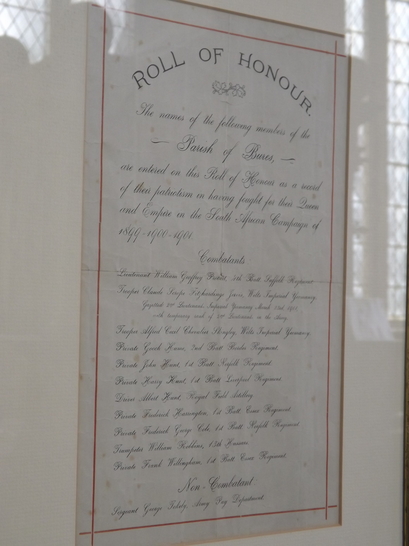 ROLL OF HONOUR.
The names of the following members of the
Parish of Bures,
are entered on this Roll of Honour as a record
of their patriotism in having fought for their Queen
and Empire in the South African Campaign of
1899-1900-1901.
Combatants
Lieutenant William Geoffrey Batt. Suffolk Regiment
Trooper Claude Imperial Yeomanry
Gazetted 2nd Lieutenant Imperial Yeomanry
with temporary rank of Lieutenant in the Army.
Trooper Alfred Cecil Imperial Yeomanry
Private 2nd Batt. Regiment
Private John Hunt, 1st Batt. Norfolk Regiment
Private Harry Hunt, 1st Batt. Liverpool Regiment
Driver Albert Hunt, Royal Field Artillery
Private Frederick Harrington, 1st Batt. Essex Regiment
Private Frederick George Cole, 1st Batt. Suffolk Regiment
Trumpeter William Robbins, Hussars
Private Frank Willingham, 1st Batt. Essex Regiment
Non-Combatant
Sergeant George Army Pay Department